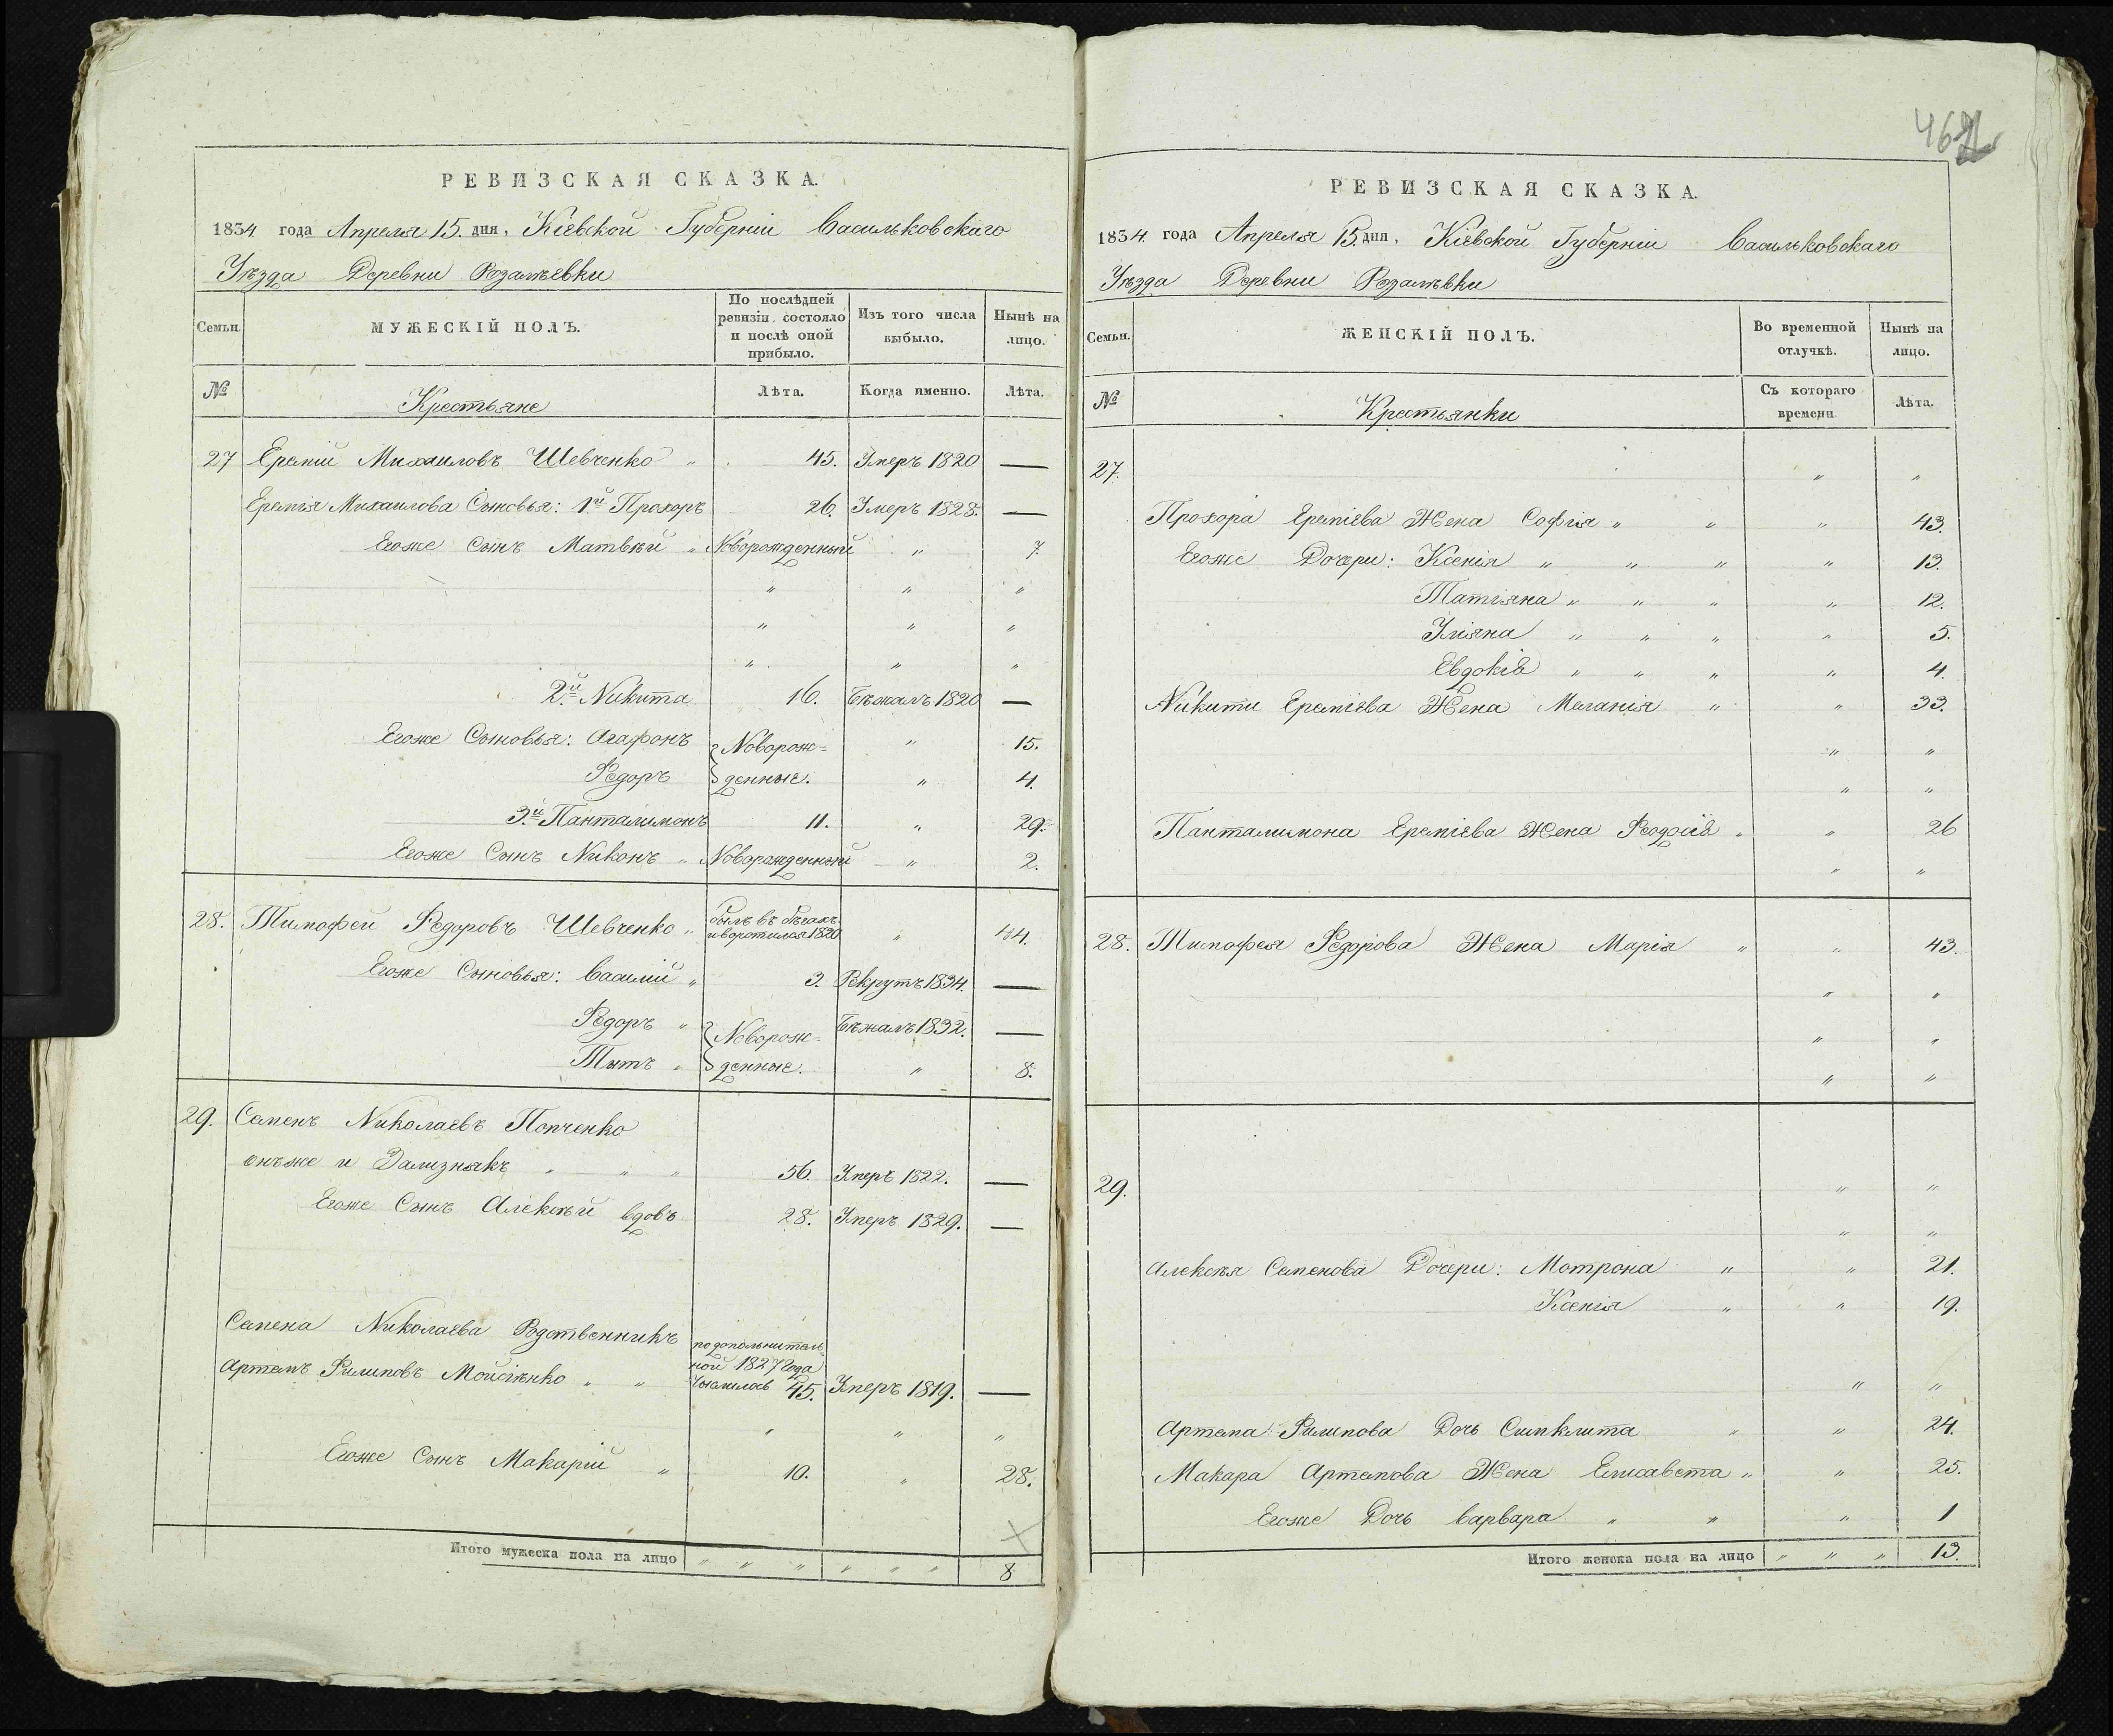 РЕВИЗСКАЯ СКАЗКА.
1834 года Апреля 15. дня, Кіевской Губерніи Васильковскаго
Уѣзда Деревни Розалѣевки
Семьи.
МУЖЕСКІЙ ПОЛЪ.
По послѣдней ревизіи состояло и послѣ оной прибыло.
Изъ того числа выбыло.
Нынѣ на лицо.
№
Крестьяне
Лѣта.
Когда именно.
Лѣта.
27 Еремій Михаиловъ Шевченко " 45. Умеръ 1820 —
Еремія Михаилова Сыновья: 1й Прохоръ 26. Умеръ 1828. —
Егоже Сынъ Матвѣй " Новорожденный " 7.
" " "
" " "
" " "
2й Никита 16. Бѣжалъ 1820 —
Егоже Сыновья: Агафонъ } Новорож= " 15.
Федоръ } денные. " 4.
3й Панталимонъ 11. " 29.
Егоже Сынъ Никонъ " Новорожденный " 2.
28. Тимофей Федоровъ Шевченко " былъ въ бѣгахъ
и воротился 1820 " 44.
Егоже Сыновья: Василій " 3. Рекрутъ 1834. —
Федоръ " } Новорож= Бѣжалъ 1832. —
Тытъ " } денные. " 8.
29. Семенъ Николаевъ Попченко
онъже и Зализнякъ " " " 56. Умеръ 1822. —
Егоже Сынъ Алексѣй вдовъ 28. Умеръ 1829. —
Семена Николаева Родственникъ
по дополнитель=
ной 1827 года
Артемъ Филиповъ Мойсіенко " " 45. Умеръ 1819. —
" " "
Егоже Сынъ Макарій " 10. " 28.
Итого мужеска пола на лицо " " " " " " 8
462
РЕВИЗСКАЯ СКАЗКА.
1834. года Апреля 15. дня, Кіевской Губерніи Васильковскаго
Уѣзда Деревни Розалѣвки
Семьи.
ЖЕНСКІЙ ПОЛЪ.
Во временной отлучкѣ.
Нынѣ на лицо.
№
Крестьянки
Съ котораго времени
Лѣта.
27. " "
Прохора Ереміева Жена Софія " " " 43.
Егоже Дочери: Ксенія " " " " 13.
Татіяна " " " " 12.
Уліяна " " " " 5.
Евдокія " " " " 4.
Никити Ереміева Жена Меланія " " 33.
" "
" "
Панталимона Ереміева Жена Феодосія " " 26
" "
28. Тимофея Федорова Жена Марія " " 43.
" "
" "
" "
29. " "
" "
Алексѣя Семенова Дочери: Мотрона " " 21.
Ксенія " " 19.
" "
Артема Филипова Дочь Синклита " " 24.
Макара Артемова Жена Елисавета " " 25.
Егоже Дочь Варвара " " " 1
Итого женска пола на лицо " " " 13.